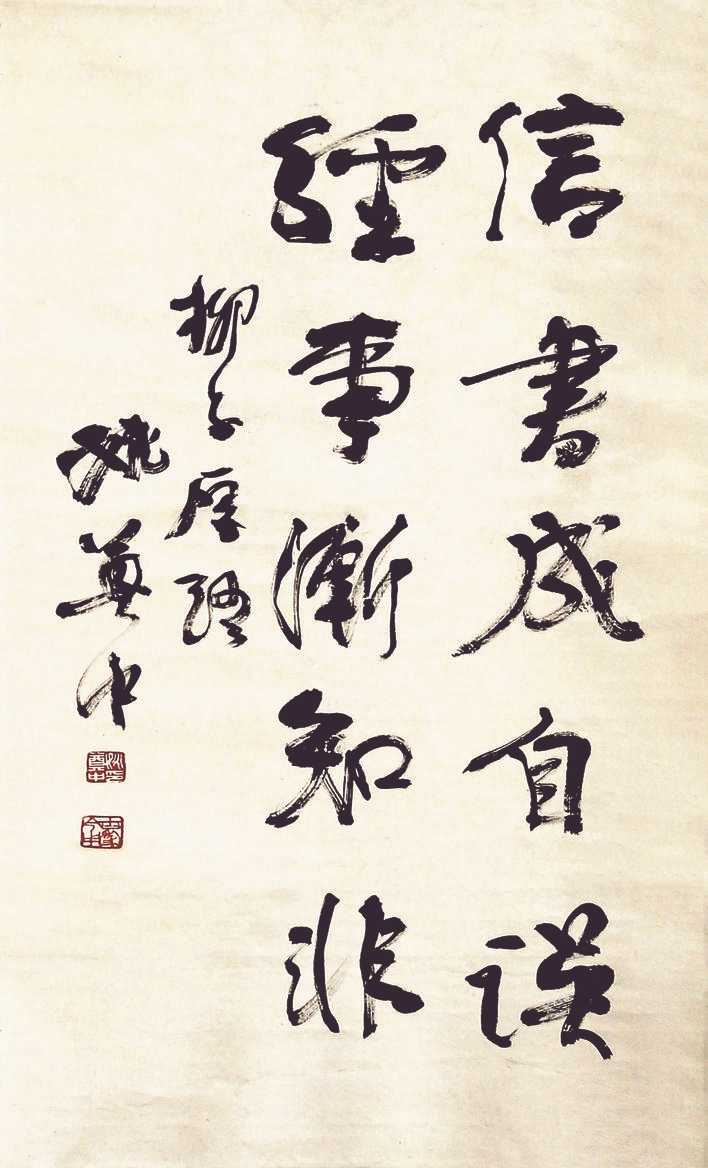 信書成自誤
經事漸知非
柳子厚語
姚奠中